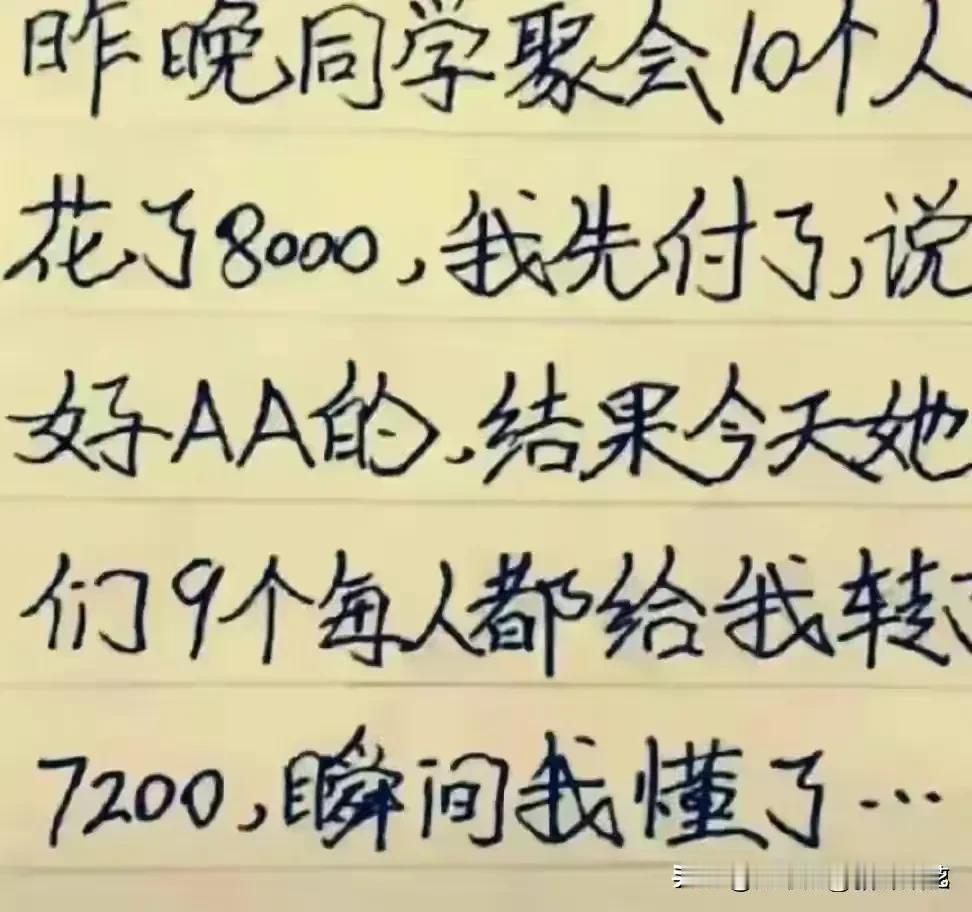 昨晚同学聚会10个人
花了8000,我先付了,说
好AA的,结果今天她
们9个每人都给我转了
7200,瞬间我懂了…